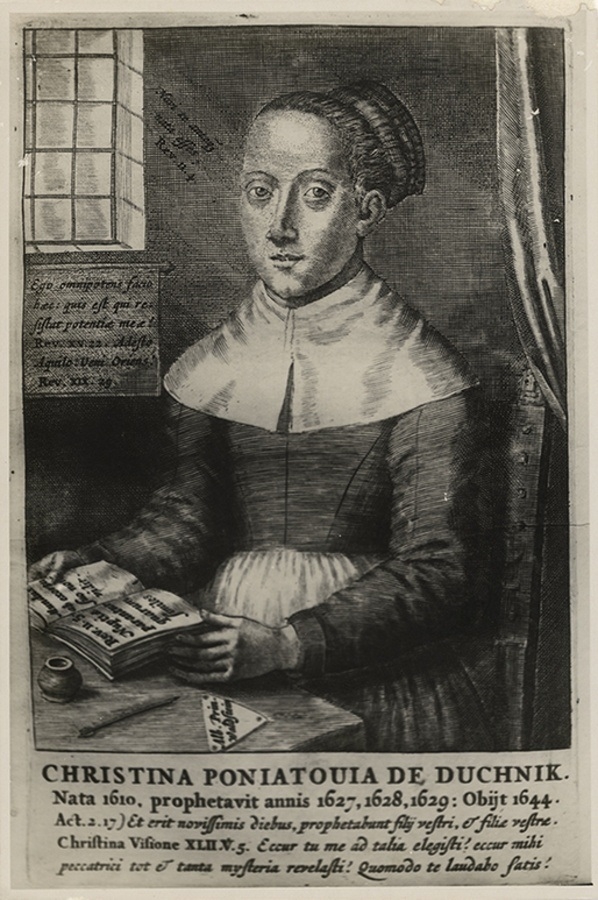 Rev. II. 4
Ego omnipotens facio
hæc: quis est qui re-
sistat potentiæ meæ?
Rev. XV. 22. Adesto
Aquilo: Veni Oriens!
Rev. XIX. 29.
Rev. V. 5.
CHRISTINA PONIATOUIA DE DUCHNIK.
Nata 1610, prophetavit annis 1627, 1628, 1629: Obijt 1644.
Act. 2. 17) Et erit novissimis diebus, prophetabunt filij vestri, & filiæ vestræ.
Christina Visione XLII. V. 5. Eccur tu me ad talia elegisti? eccur mihi
peccatrici tot & tanta mysteria revelasti? Quomodo te laudabo satis?